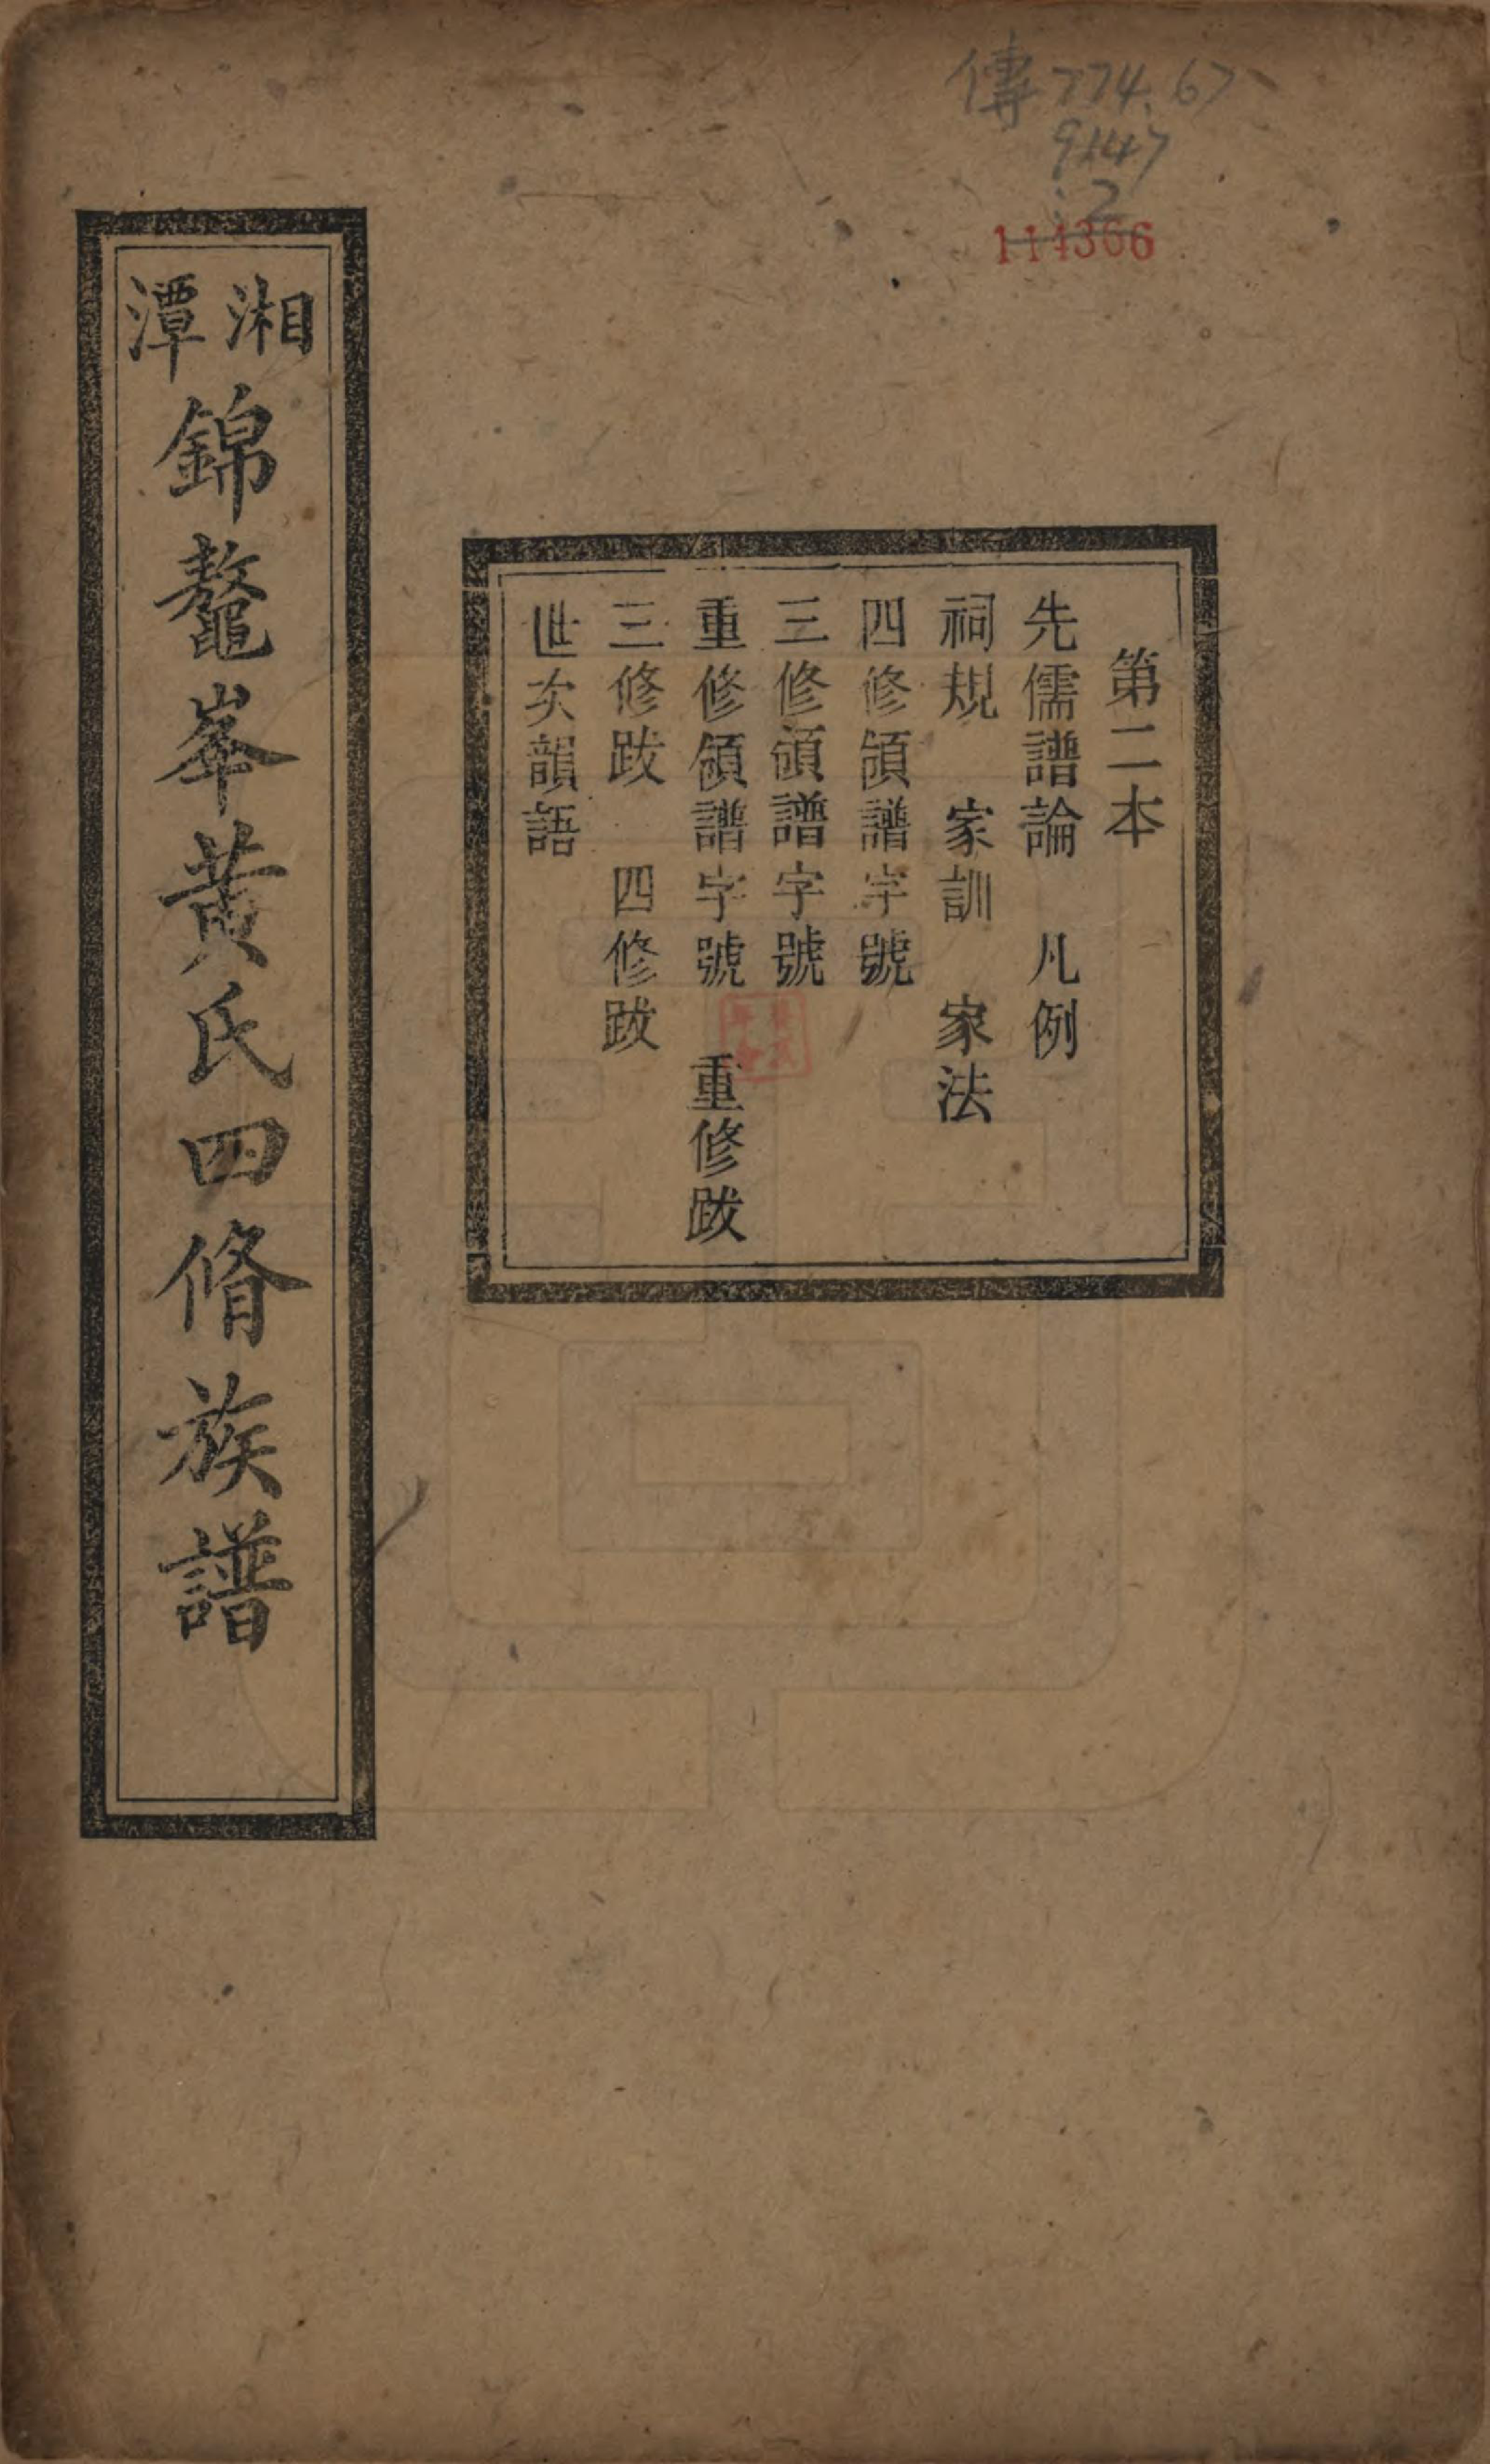 傳774.67
9147
:2
114366
第二本
先儒譜論 凡例
祠規 家訓 家法
四修領譜字號
三修領譜字號
重修領譜字號 重修跋
三修跋 四修跋
世次韻語
湘潭錦鰲峯黃氏四脩族譜